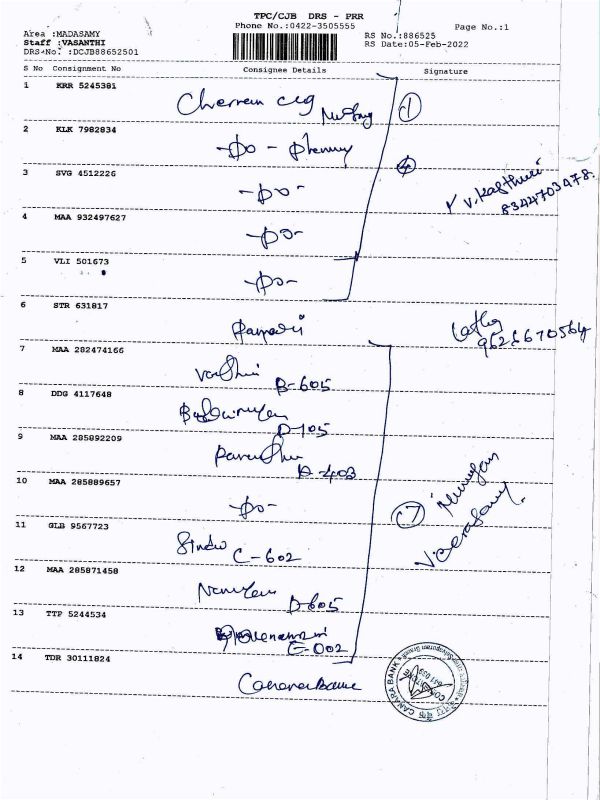 TPC/CJB DRS - PRR
Area :MADASAMY Phone No.:0422-3505555 Page No.:1
Staff :VASANTHI RS No. :886525
DRS No. :DCJB88652501 RS Date:05-Feb-2022
S No Consignment No Consignee Details Signature
1 KRR 5245381
①
2 KLK 7982834
-Do-
④
3 SVG 4512226
-Do-
V. Kasthuri
8344703478.
4 MAA 932497627
-Do-
5 VLI 501673
-Do-
6 STR 631817
9626670564
7 MAA 282474166
B-605
8 DDG 4117648
D-105
9 MAA 285892209
D-403
10 MAA 285889657
-Do-
⑦ Murugan
Veerasamy.
11 GLB 9567723
Sindu
C-602
12 MAA 285871458
D-605
13 TTP 5244534
C-002
14 TDR 30111824
Canara Bank
CANARA BANK